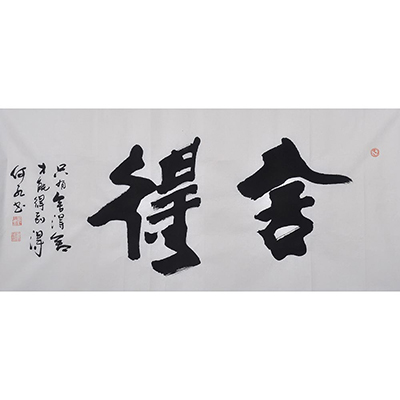 舍得
只有舍得舍
才能得到得
何 书